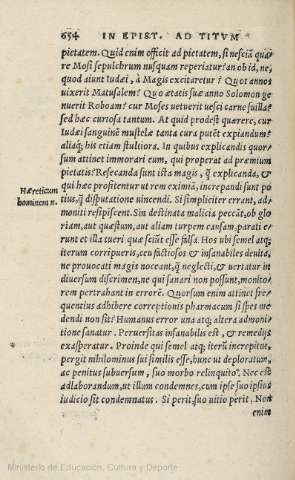 654 IN EPIST. AD TITVM
pietatem. Quid enim officit ad pietatem, si nesciã qua/
re Mosi sepulchrum nusquam reperiatur? an ob id, ne,
quod aiunt Iudæi, à Magis excitaretur? Quot annos
vixerit Matusalem? Quo ætatis suæ anno Solomon ge/
nuerit Roboam? cur Moses vetuerit vesci carne suilla?
sed hæc curiosa tantum. At quid prodest quærere, cur
Iudæi sanguinẽ mustelæ tanta cura putẽt expiandum?
aliaq; his etiam stultiora. In quibus explicandis quor/
sum attinet immorari eum, qui properat ad præmium
pietatis? Resecanda sunt ista magis, q̃ explicanda, &
qui hæc profitentur vt rem eximiã, increpandi sunt po
Hæreticum
tius, q̃ disputatione vincendi. Si simpliciter errant, ad/
hominem
moniti resipiscent. Sin destinata malicia peccãt, ob glo
riam, aut quæstum, aut aliam turpem causam, parati e/
runt et illa tueri quæ sciũt esse falsa. Hos vbi semel atq;
iterum corripueris, ceu factiosos & insanabiles deuita,
ne prouocati magis noceant, q̃ neglecti, & vertatur in
diuersum discrimen, ne qui sanari non possunt, monito/
rem pertrahant in errorẽ. Quorsum enim attinet fre/
quentius adhibere correptionis pharmacum si spes me
dendi non sit? Humanus error vna atq; altera admoni
tione sanatur. Peruersitas insanabilis est, & remedijs
exasperatur. Proinde qui semel atq; iterũ increpitus,
pergit nihilominus sui similis esse, hunc vt deploratum,
ac penitus subuersum, suo morbo relinquito. Nec est
adlaborandum, vt illum condemnes, cum ipse suo ipsius
iudicio sit condemnatus. Si perit, suo vitio perit. Non
enim
Ministerio de Educación, Cultura y Deporte